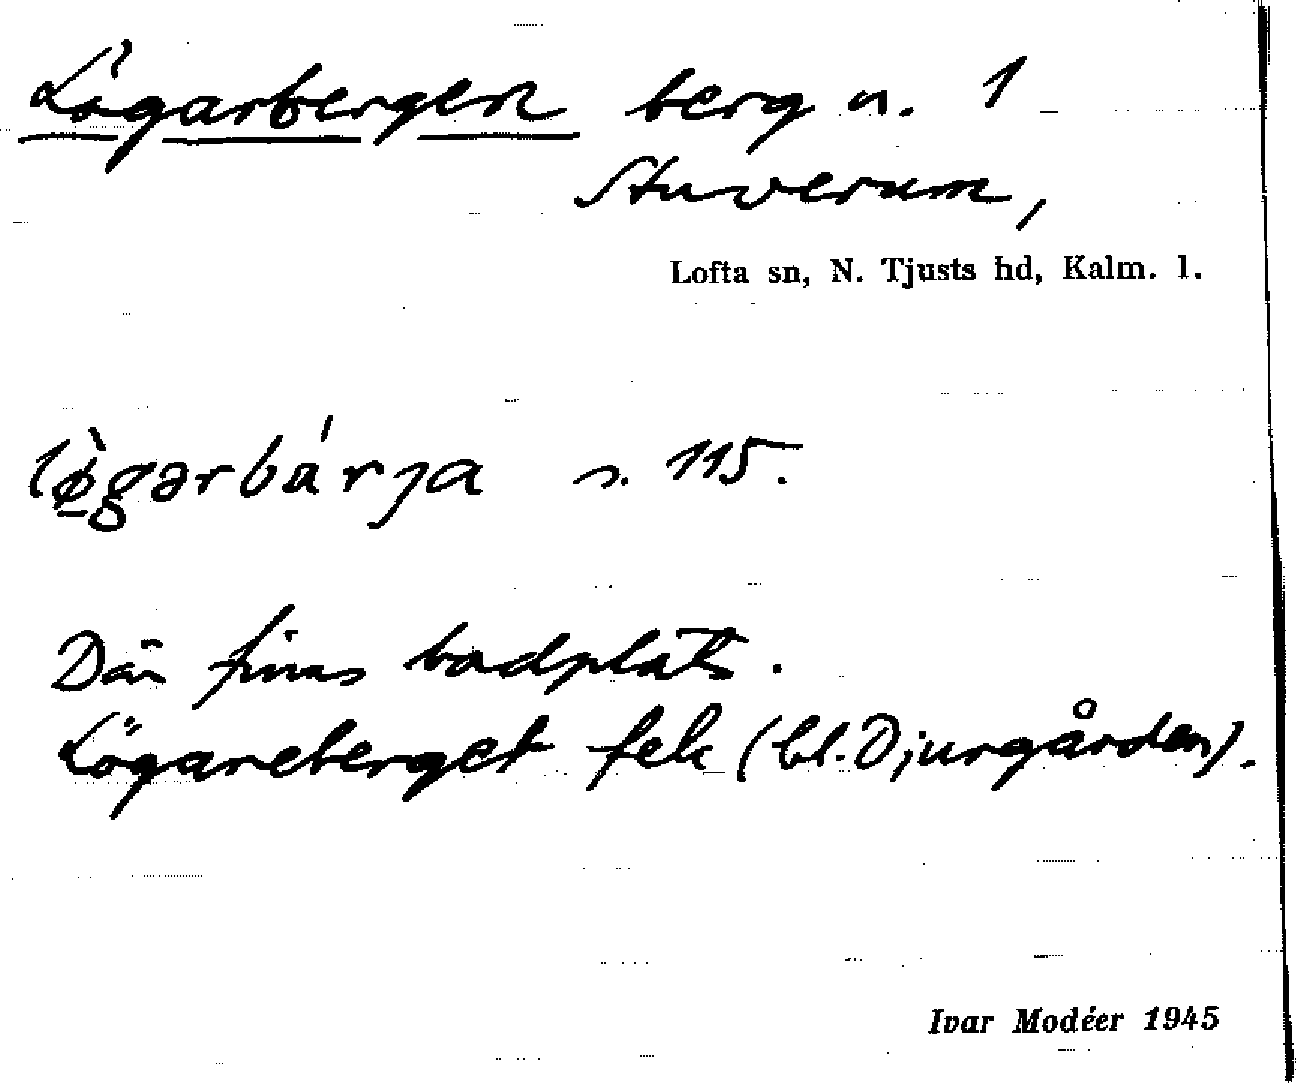 Lögarbergen berg n. 1
Stuverum,
Lofta sn, N. Tjusts hd, Kalm. l.
lø̀gərbárja s. 115.
Där finns badplats.
Lögareberget fek (bl. Djurgården).
Ivar Modéer 1945